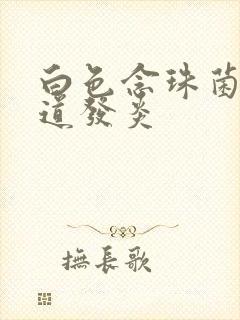 白色念珠菌
道發炎
撫長歌